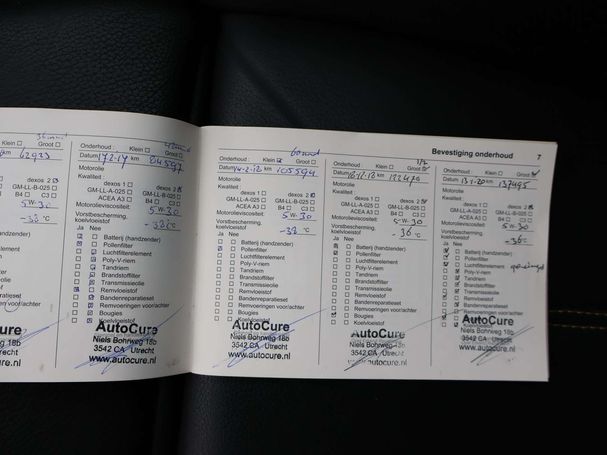 Klein
Groot
km 62923
dexos 2
GM-LL-B-025
B4 C3
5 W-30
-38 °C
Nee
AutoCure
Niels Bohrweg 18b
3542 CA Utrecht
www.autocure.nl
Onderhoud : Klein
Groot
Datum 17-2-17 km 84597
Motorolie
Kwaliteit :
dexos 1 dexos 2
GM-LL-A-025 GM-LL-B-025
ACEA A3 B4 C3
Motorolieviscositeit:
5 W-30
Vorstbescherming,
koelvloeistof
-38 °C
Ja Nee
Batterij (handzender)
Pollenfilter
Luchtfilterelement
Poly-V-riem
Tandriem
Brandstoffilter
Transmissieolie
Remvloeistof
Bandenreparatieset
Remvoeringen voor/achter
Bougies
Koelvloeistof
AutoCure
Niels Bohrweg 18b
3542 CA Utrecht
www.autocure.nl
Bevestiging onderhoud 7
Onderhoud : Klein
Groot
km 105594
Motorolie
Kwaliteit :
dexos 1 dexos 2
GM-LL-A-025 GM-LL-B-025
ACEA A3 B4 C3
Motorolieviscositeit:
5 W-30
Vorstbescherming,
koelvloeistof
-38 °C
Ja Nee
Batterij (handzender)
Pollenfilter
Luchtfilterelement
Poly-V-riem
Tandriem
Brandstoffilter
Transmissieolie
Remvloeistof
Bandenreparatieset
Remvoeringen voor/achter
Bougies
Koelvloeistof
AutoCure
Niels Bohrweg 18b
3542 CA Utrecht
www.autocure.nl
Onderhoud : Klein
Groot
Datum km 122470
Motorolie
Kwaliteit :
dexos 1 dexos 2
GM-LL-A-025 GM-LL-B-025
ACEA A3 B4 C3
Motorolieviscositeit:
5-W-30
Vorstbescherming,
koelvloeistof
-36 °C
Ja Nee
Batterij (handzender)
Pollenfilter
Luchtfilterelement
Poly-V-riem
Tandriem
Brandstoffilter
Transmissieolie
Remvloeistof
Bandenreparatieset
Remvoeringen voor/achter
Bougies
Koelvloeistof
AutoCure
Niels Bohrweg 18b
3542 CA Utrecht
www.autocure.nl
Onderhoud : Klein
Groot
Datum 13-1-20 km 137495
Motorolie
Kwaliteit :
dexos 1 dexos 2
GM-LL-A-025 GM-LL-B-025
ACEA A3 B4 C3
Motorolieviscositeit:
5 W-30
Vorstbescherming,
koelvloeistof
-36 °C
Ja Nee
Batterij (handzender)
Pollenfilter
Luchtfilterelement
Poly-V-riem
Tandriem
Brandstoffilter
Transmissieolie
Remvloeistof
Bandenreparatieset
Remvoeringen voor/achter
Bougies
Koelvloeistof
AutoCure
Niels Bohrweg 18b
3542 CA Utrecht
www.autocure.nl